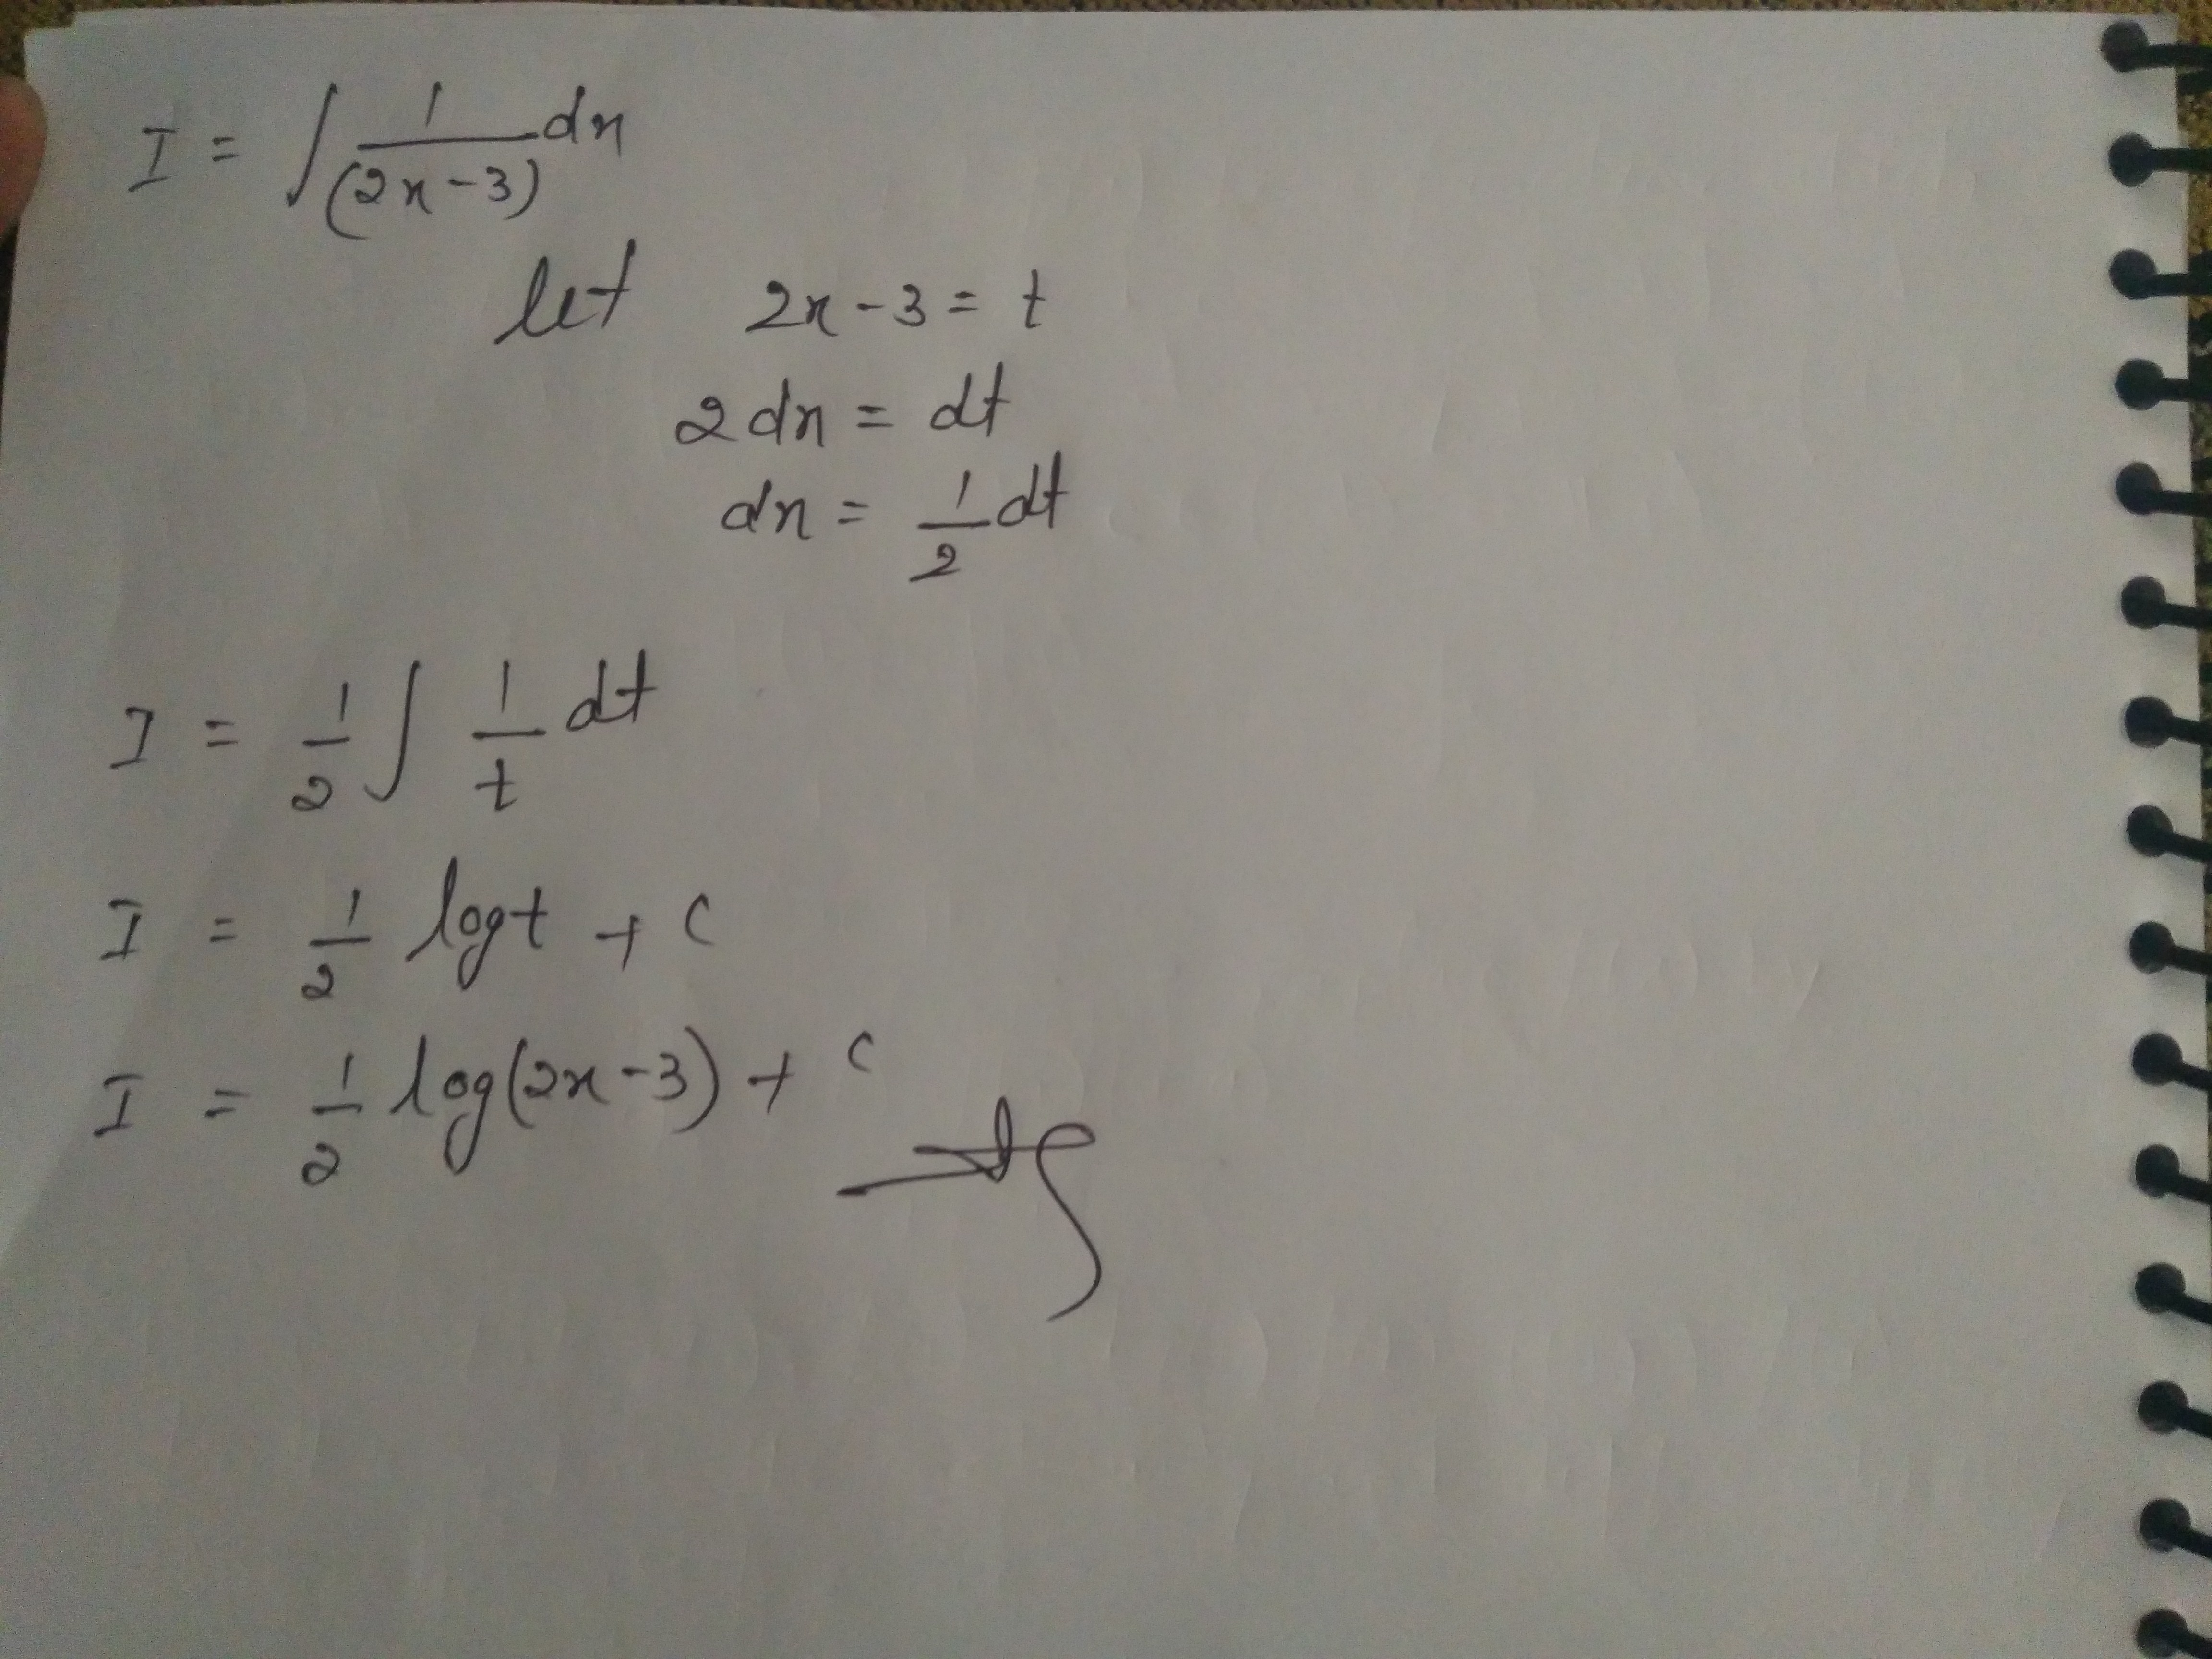 I = ∫ 1/(2x-3) dx
let 2x-3 = t
2dx = dt
dx = 1/2 dt
I = 1/2 ∫ 1/t dt
I = 1/2 log t + c
I = 1/2 log(2x-3) + c